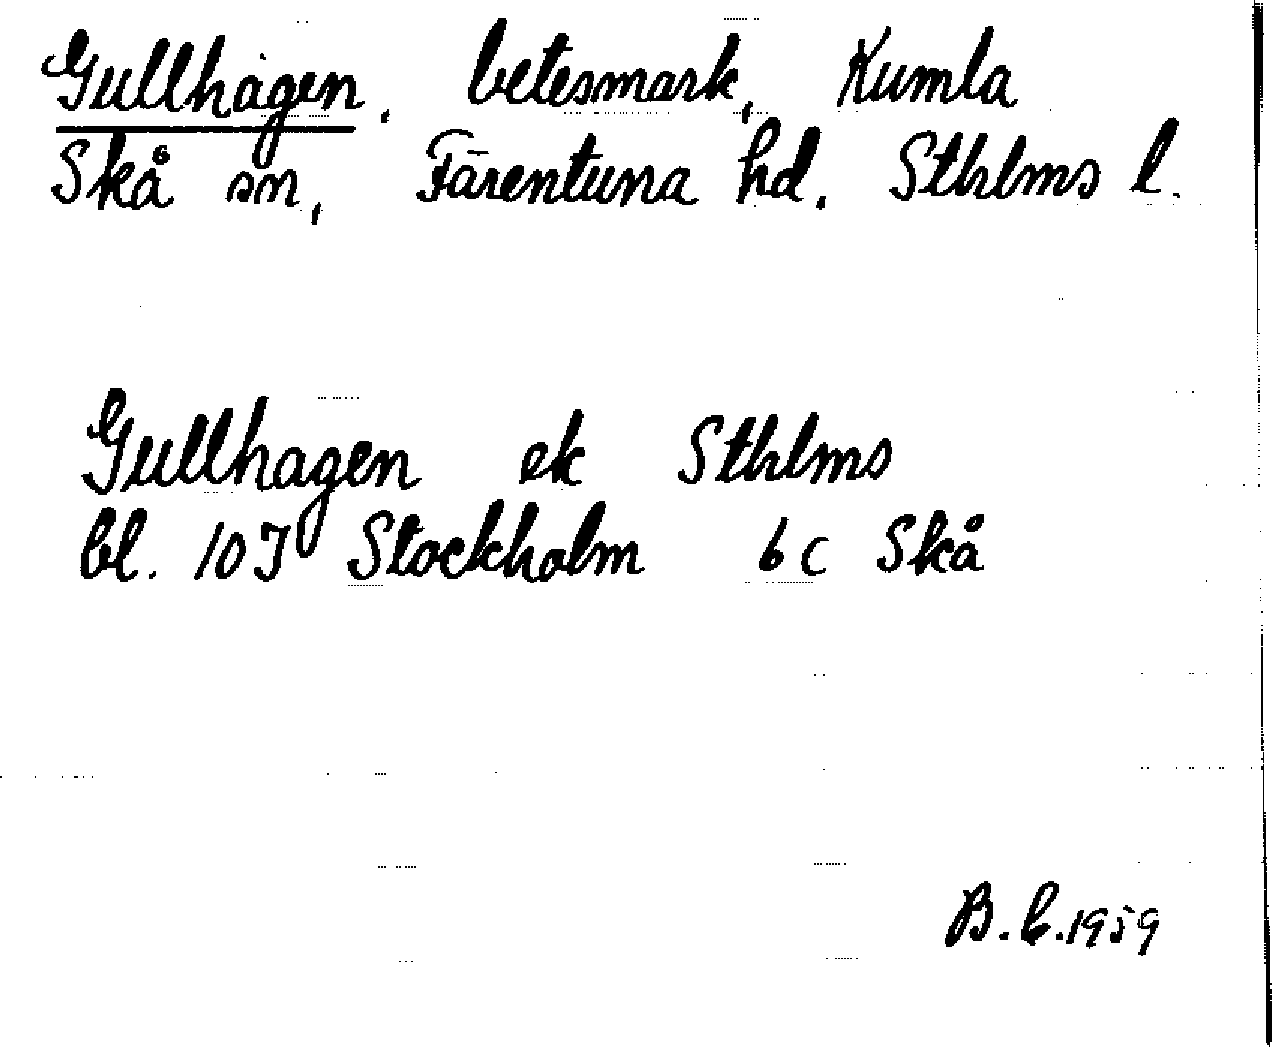 Gullhagen, betesmark, Kumla
Skå sn, Färentuna hd. Sthlms l.
Gullhagen ek Sthlms
bl. 10I Stockholm 6c Skå
B.b.1959